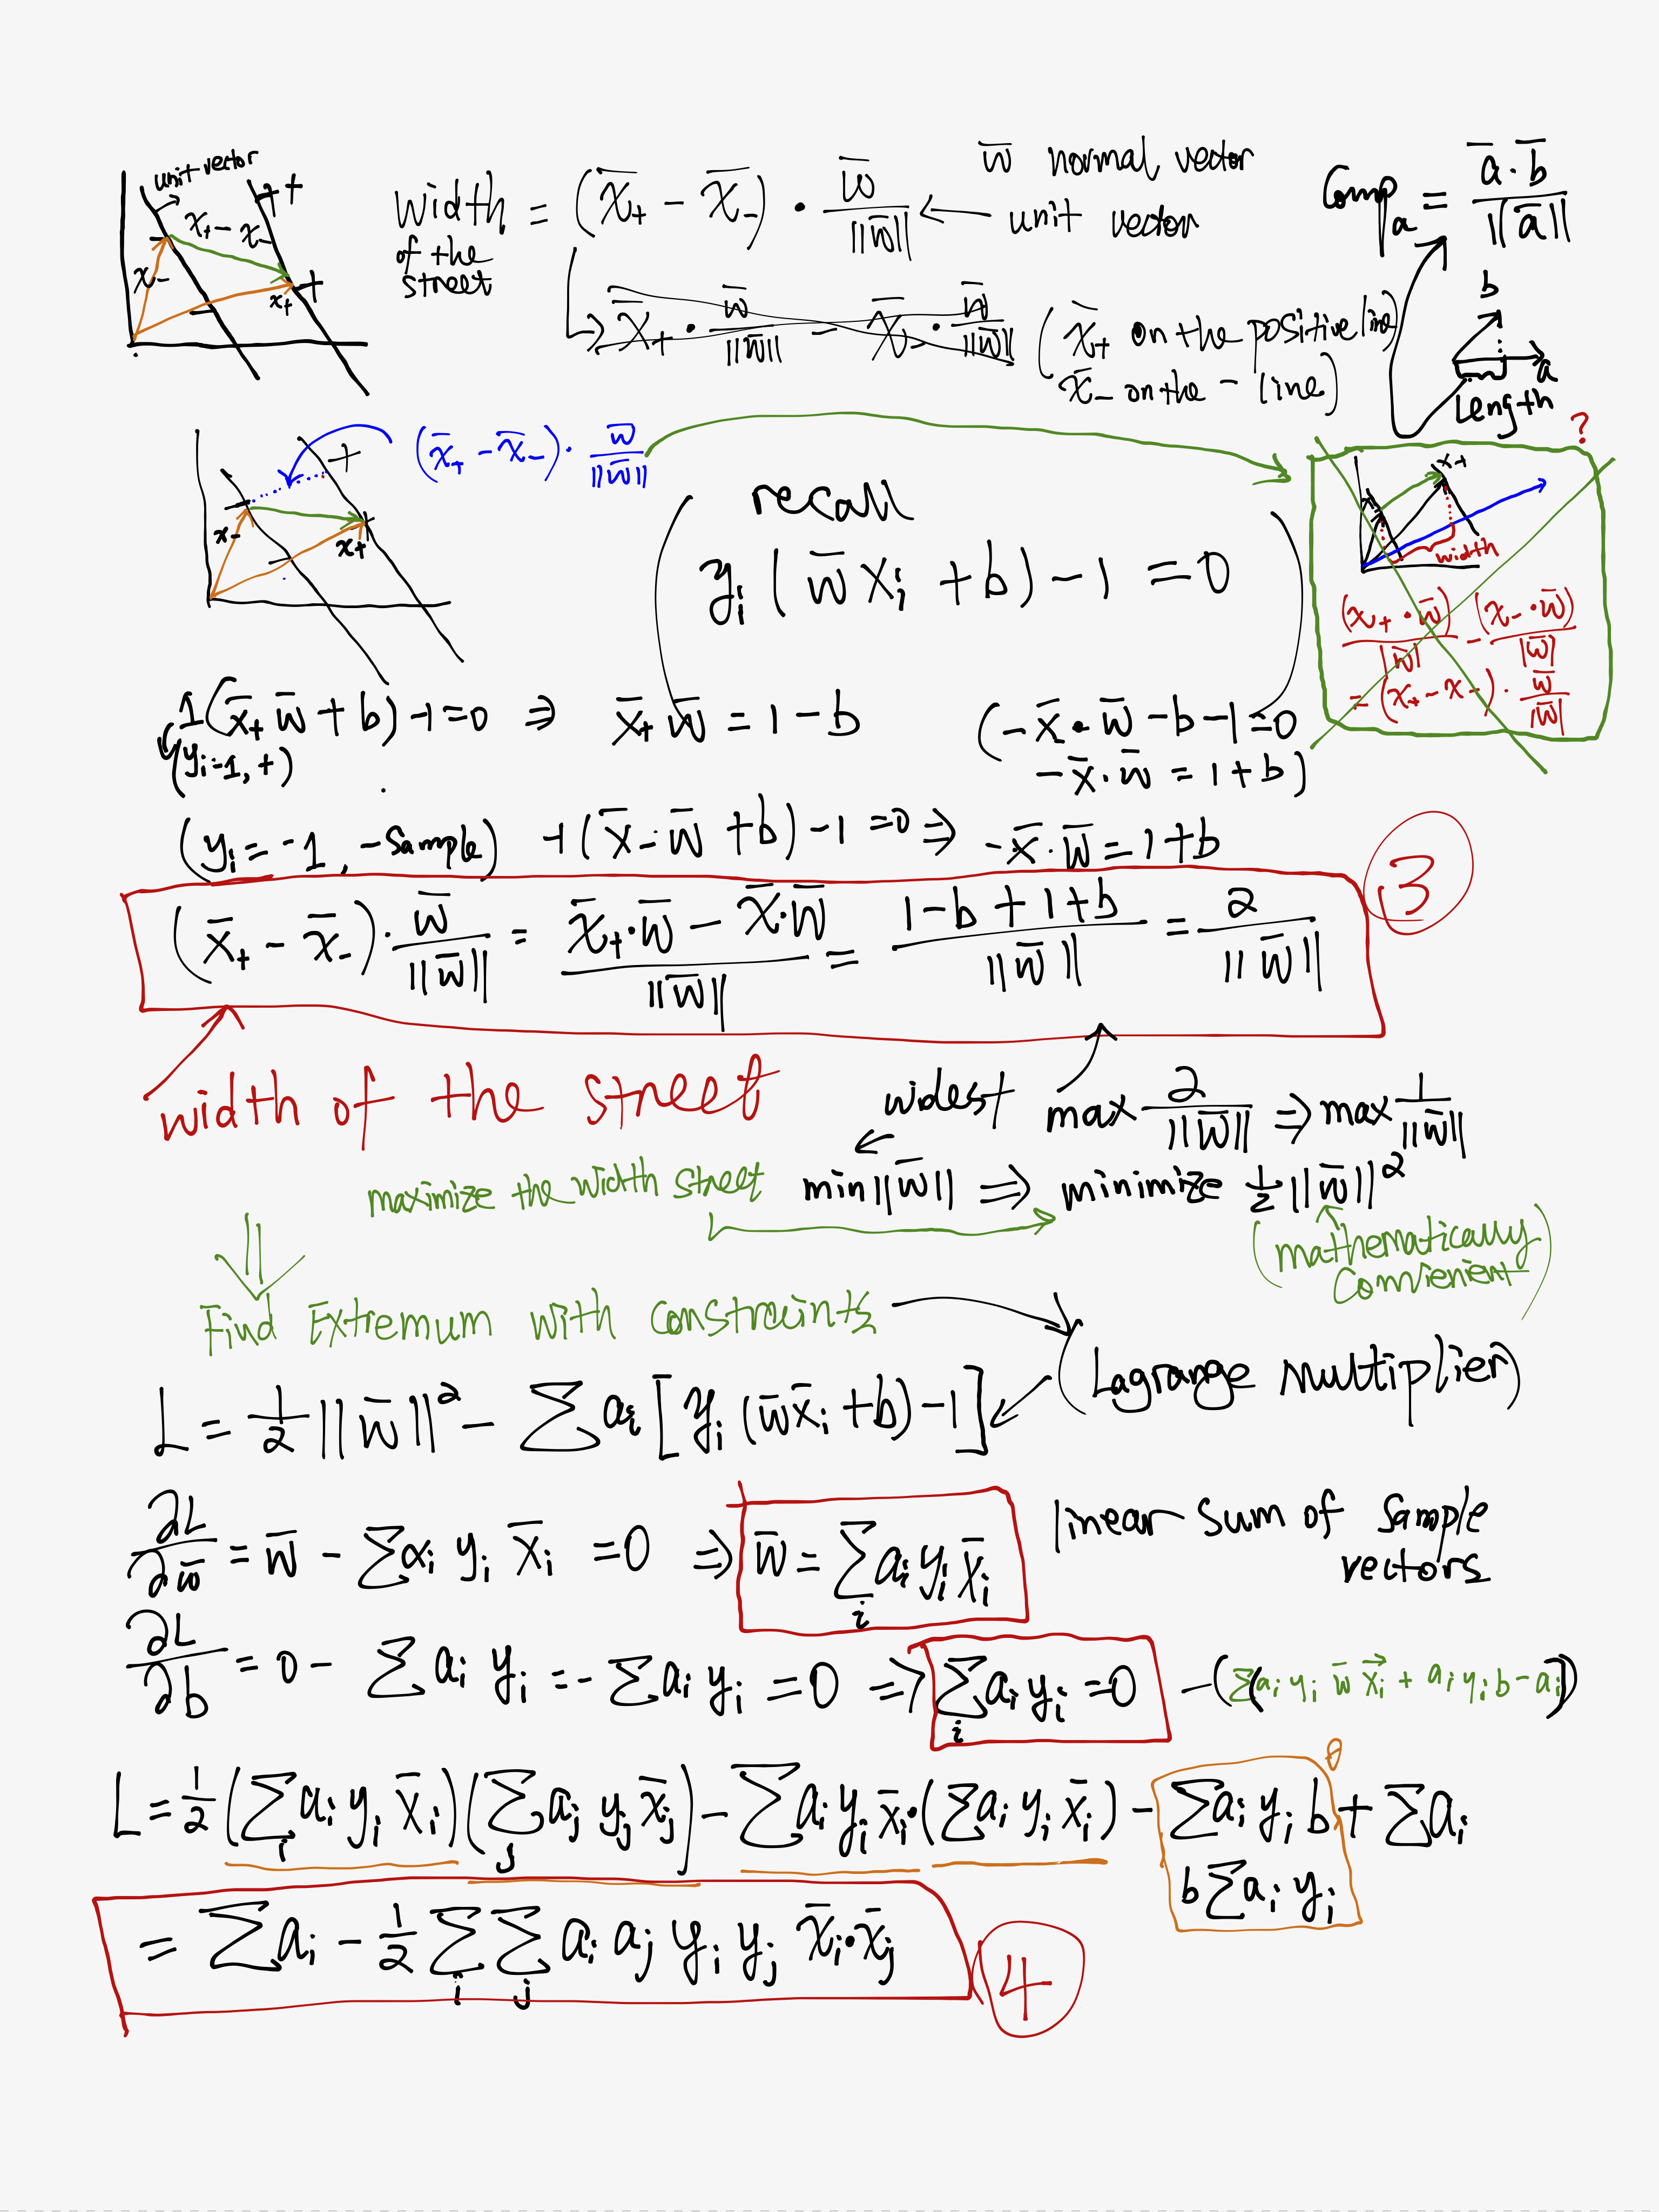 unit vector
++
x₊ - x₋
x₋
x₊ +
width of the street = (x̄₊ - x̄₋) · w̄/||w̄|| ← w̄ normal vector
unit vector
Compₐ = ā·b̄/||ā||
x̄₊ · w̄/||w̄|| - x̄₋ · w̄/||w̄|| (x̄₊ on the positive line
x̄₋ on the - line)
b
a
Length
?
(x̄₊ - x̄₋) · w̄/||w̄||
+
x₋
x₊
recall
yᵢ (w̄ xᵢ + b) - 1 = 0
x₊
x₋
width
(x₊ · w̄)/|w̄| - (x₋ · w̄)/|w̄|
= (x₊ - x₋) · w̄/|w̄|
1(x̄₊ w̄ + b) - 1 = 0 ⇒ x̄₊ w̄ = 1 - b (-x̄₋ · w̄ - b - 1 = 0
(yᵢ = 1, +) -x̄ · w̄ = 1 + b)
(yᵢ = -1, - sample) -1(x̄₋ w̄ + b) - 1 = 0 ⇒ -x̄ · w̄ = 1 + b
(x̄₊ - x̄₋) · w̄/||w̄|| = (x̄₊·w̄ - x̄·w̄)/||w̄|| = (1 - b + 1 + b)/||w̄|| = 2/||w̄||
3
width of the street widest max 2/||w̄|| ⇒ max 1/||w̄||
maximize the width street min ||w̄|| ⇒ minimize ½||w̄||²
(mathematically
convienient)
Find Extremum with constraints
(Lagrange multiplier)
L = ½||w̄||² - Σ aᵢ [yᵢ (w̄x̄ᵢ + b) - 1]
∂L/∂w̄ = w̄ - Σ αᵢ yᵢ x̄ᵢ = 0 ⇒ w̄ = Σᵢ aᵢ yᵢ x̄ᵢ linear sum of sample
vectors
∂L/∂b = 0 - Σ aᵢ yᵢ = - Σ aᵢ yᵢ = 0 ⇒ Σᵢ aᵢ yᵢ = 0 - (Σ(aᵢ yᵢ w̄ x⃗ᵢ + aᵢ yᵢ b - aᵢ))
0
L = ½ (Σᵢ aᵢ yᵢ x̄ᵢ)(Σⱼ aⱼ yⱼ x̄ⱼ) - Σ aᵢ yᵢ x̄ᵢ·(Σ aᵢ yᵢ x̄ᵢ) - Σ aᵢ yᵢ b + Σ aᵢ
b Σ aᵢ yᵢ
= Σ aᵢ - ½ Σᵢ Σⱼ aᵢ aⱼ yᵢ yⱼ x̄ᵢ·x̄ⱼ
4